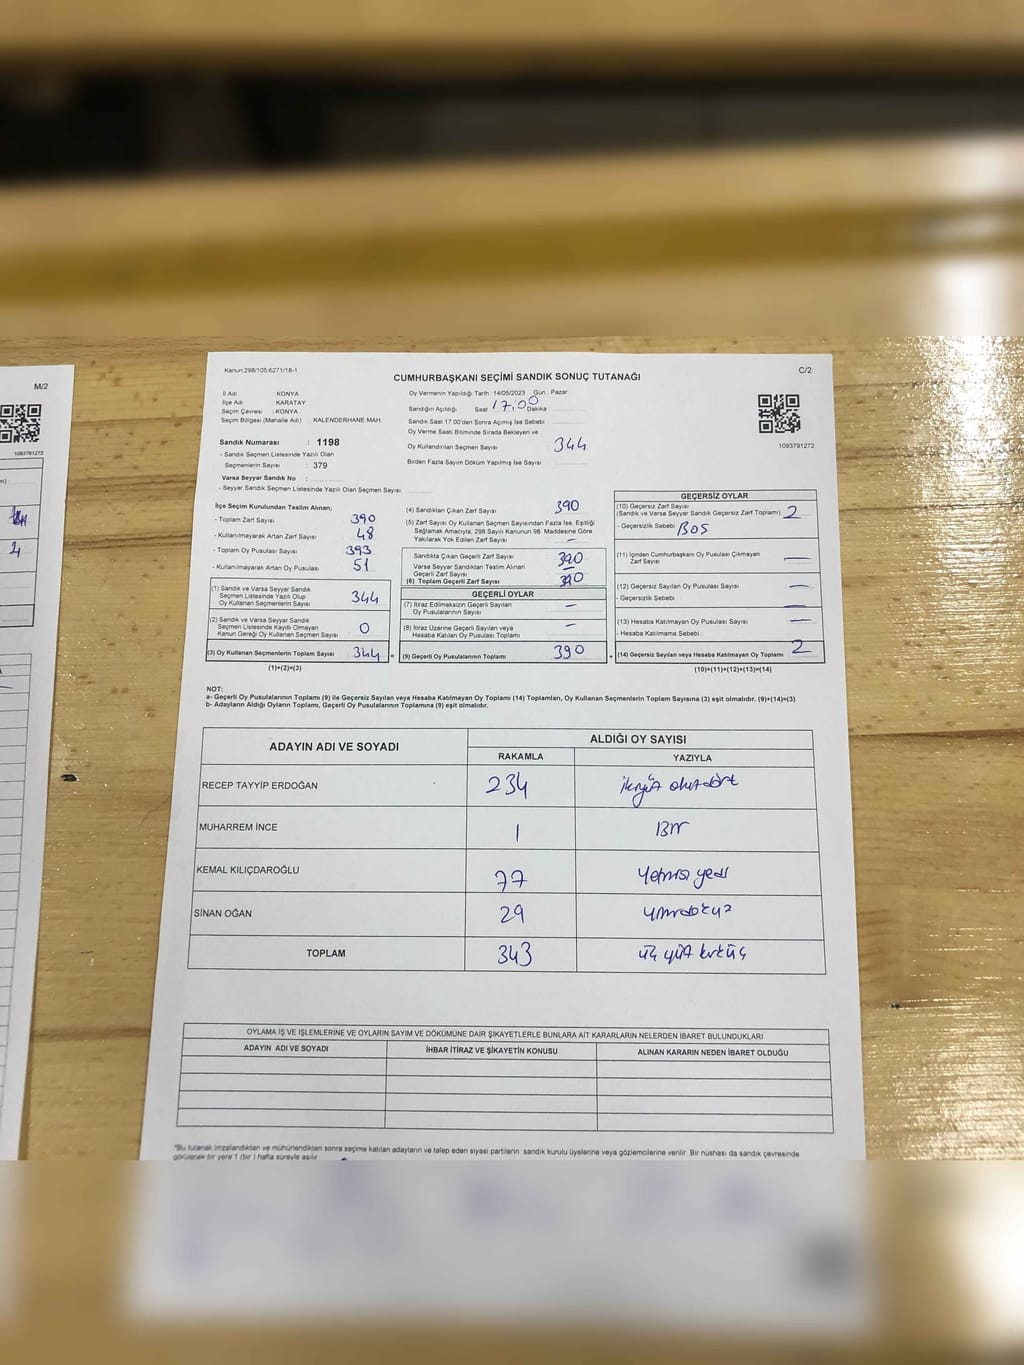 M/2
1093791272
4
Kanun:298/105,6271/18-1
C/2
CUMHURBAŞKANI SEÇİMİ SANDIK SONUÇ TUTANAĞI
İl Adı : KONYA
İlçe Adı : KARATAY
Seçim Çevresi : KONYA
Seçim Bölgesi (Mahalle Adı) : KALENDERHANE MAH.
Oy Vermenin Yapıldığı Tarih :14/05/2023 Gün : Pazar
Sandığın Açıldığı Saat 17:00 Dakika
Sandık Saat 17:00'den Sonra Açılmış İse Sebebi :
Oy Verme Saati Bitiminde Sırada Bekleyen ve
Oy Kullandırılan Seçmen Sayısı 344
Birden Fazla Sayım Döküm Yapılmış İse Sayısı
1093791272
Sandık Numarası : 1198
- Sandık Seçmen Listesinde Yazılı Olan
Seçmenlerin Sayısı : 379
Varsa Seyyar Sandık No :
- Seyyar Sandık Seçmen Listesinde Yazılı Olan Seçmen Sayısı
İlçe Seçim Kurulundan Teslim Alınan;
- Toplam Zarf Sayısı 390
- Kullanılmayarak Artan Zarf Sayısı 48
- Toplam Oy Pusulası Sayısı 393
- Kullanılmayarak Artan Oy Pusulası 51
(1) Sandık ve Varsa Seyyar Sandık
Seçmen Listesinde Yazılı Olup
Oy Kullanan Seçmenlerin Sayısı 344
(2) Sandık ve Varsa Seyyar Sandık
Seçmen Listesinde Kayıtlı Olmayan
Kanun Gereği Oy Kullanan Seçmen Sayısı 0
(3) Oy Kullanan Seçmenlerin Toplam Sayısı 344
(1)+(2)=(3)
(4) Sandıktan Çıkan Zarf Sayısı 390
(5) Zarf Sayısı Oy Kullanan Seçmen Sayısından Fazla İse, Eşitliği
Sağlamak Amacıyla; 298 Sayılı Kanunun 98. Maddesine Göre
Yakılarak Yok Edilen Zarf Sayısı –
Sandıkta Çıkan Geçerli Zarf Sayısı 390
Varsa Seyyar Sandıktan Teslim Alınan
Geçerli Zarf Sayısı –
(6) Toplam Geçerli Zarf Sayısı 390
GEÇERLİ OYLAR
(7) İtiraz Edilmeksizin Geçerli Sayılan
Oy Pusulalarının Sayısı –
(8) İtiraz Üzerine Geçerli Sayılan veya
Hesaba Katılan Oy Pusulası Toplamı –
= (9) Geçerli Oy Pusulalarının Toplamı 390
GEÇERSİZ OYLAR
(10) Geçersiz Zarf Sayısı
(Sandık ve Varsa Seyyar Sandık Geçersiz Zarf Toplamı) 2
- Geçersizlik Sebebi : BOŞ
(11) İçinden Cumhurbaşkanı Oy Pusulası Çıkmayan
Zarf Sayısı –
(12) Geçersiz Sayılan Oy Pusulası Sayısı –
- Geçersizlik Sebebi : –
(13) Hesaba Katılmayan Oy Pusulası Sayısı –
- Hesaba Katılmama Sebebi :
+ (14) Geçersiz Sayılan veya Hesaba Katılmayan Oy Toplamı 2
(10)+(11)+(12)+(13)=(14)
NOT:
a- Geçerli Oy Pusulalarının Toplamı (9) ile Geçersiz Sayılan veya Hesaba Katılmayan Oy Toplamı (14) Toplamları, Oy Kullanan Seçmenlerin Toplam Sayısına (3) eşit olmalıdır. (9)+(14)=(3)
b- Adayların Aldığı Oyların Toplamı, Geçerli Oy Pusulalarının Toplamına (9) eşit olmalıdır.
ADAYIN ADI VE SOYADI
ALDIĞI OY SAYISI
RAKAMLA YAZIYLA
RECEP TAYYİP ERDOĞAN 234 ikiyüz otuzdört
MUHARREM İNCE 1 Bir
KEMAL KILIÇDAROĞLU 77 Yetmiş yedi
SİNAN OĞAN 29 yirmidokuz
TOPLAM 343 üç yüz kırküç
OYLAMA İŞ VE İŞLEMLERİNE VE OYLARIN SAYIM VE DÖKÜMÜNE DAİR ŞİKAYETLERLE BUNLARA AİT KARARLARIN NELERDEN İBARET BULUNDUKLARI
ADAYIN ADI VE SOYADI İHBAR İTİRAZ VE ŞİKAYETİN KONUSU ALINAN KARARIN NEDEN İBARET OLDUĞU
*Bu tutanak imzalandıktan ve mühürlendikten sonra seçime katılan adayların ve talep eden siyasi partilerin sandık kurulu üyelerine veya gözlemcilerine verilir. Bir nüshası da sandık çevresinde
görülecek bir yere 1 (bir ) hafta süreyle asılır.